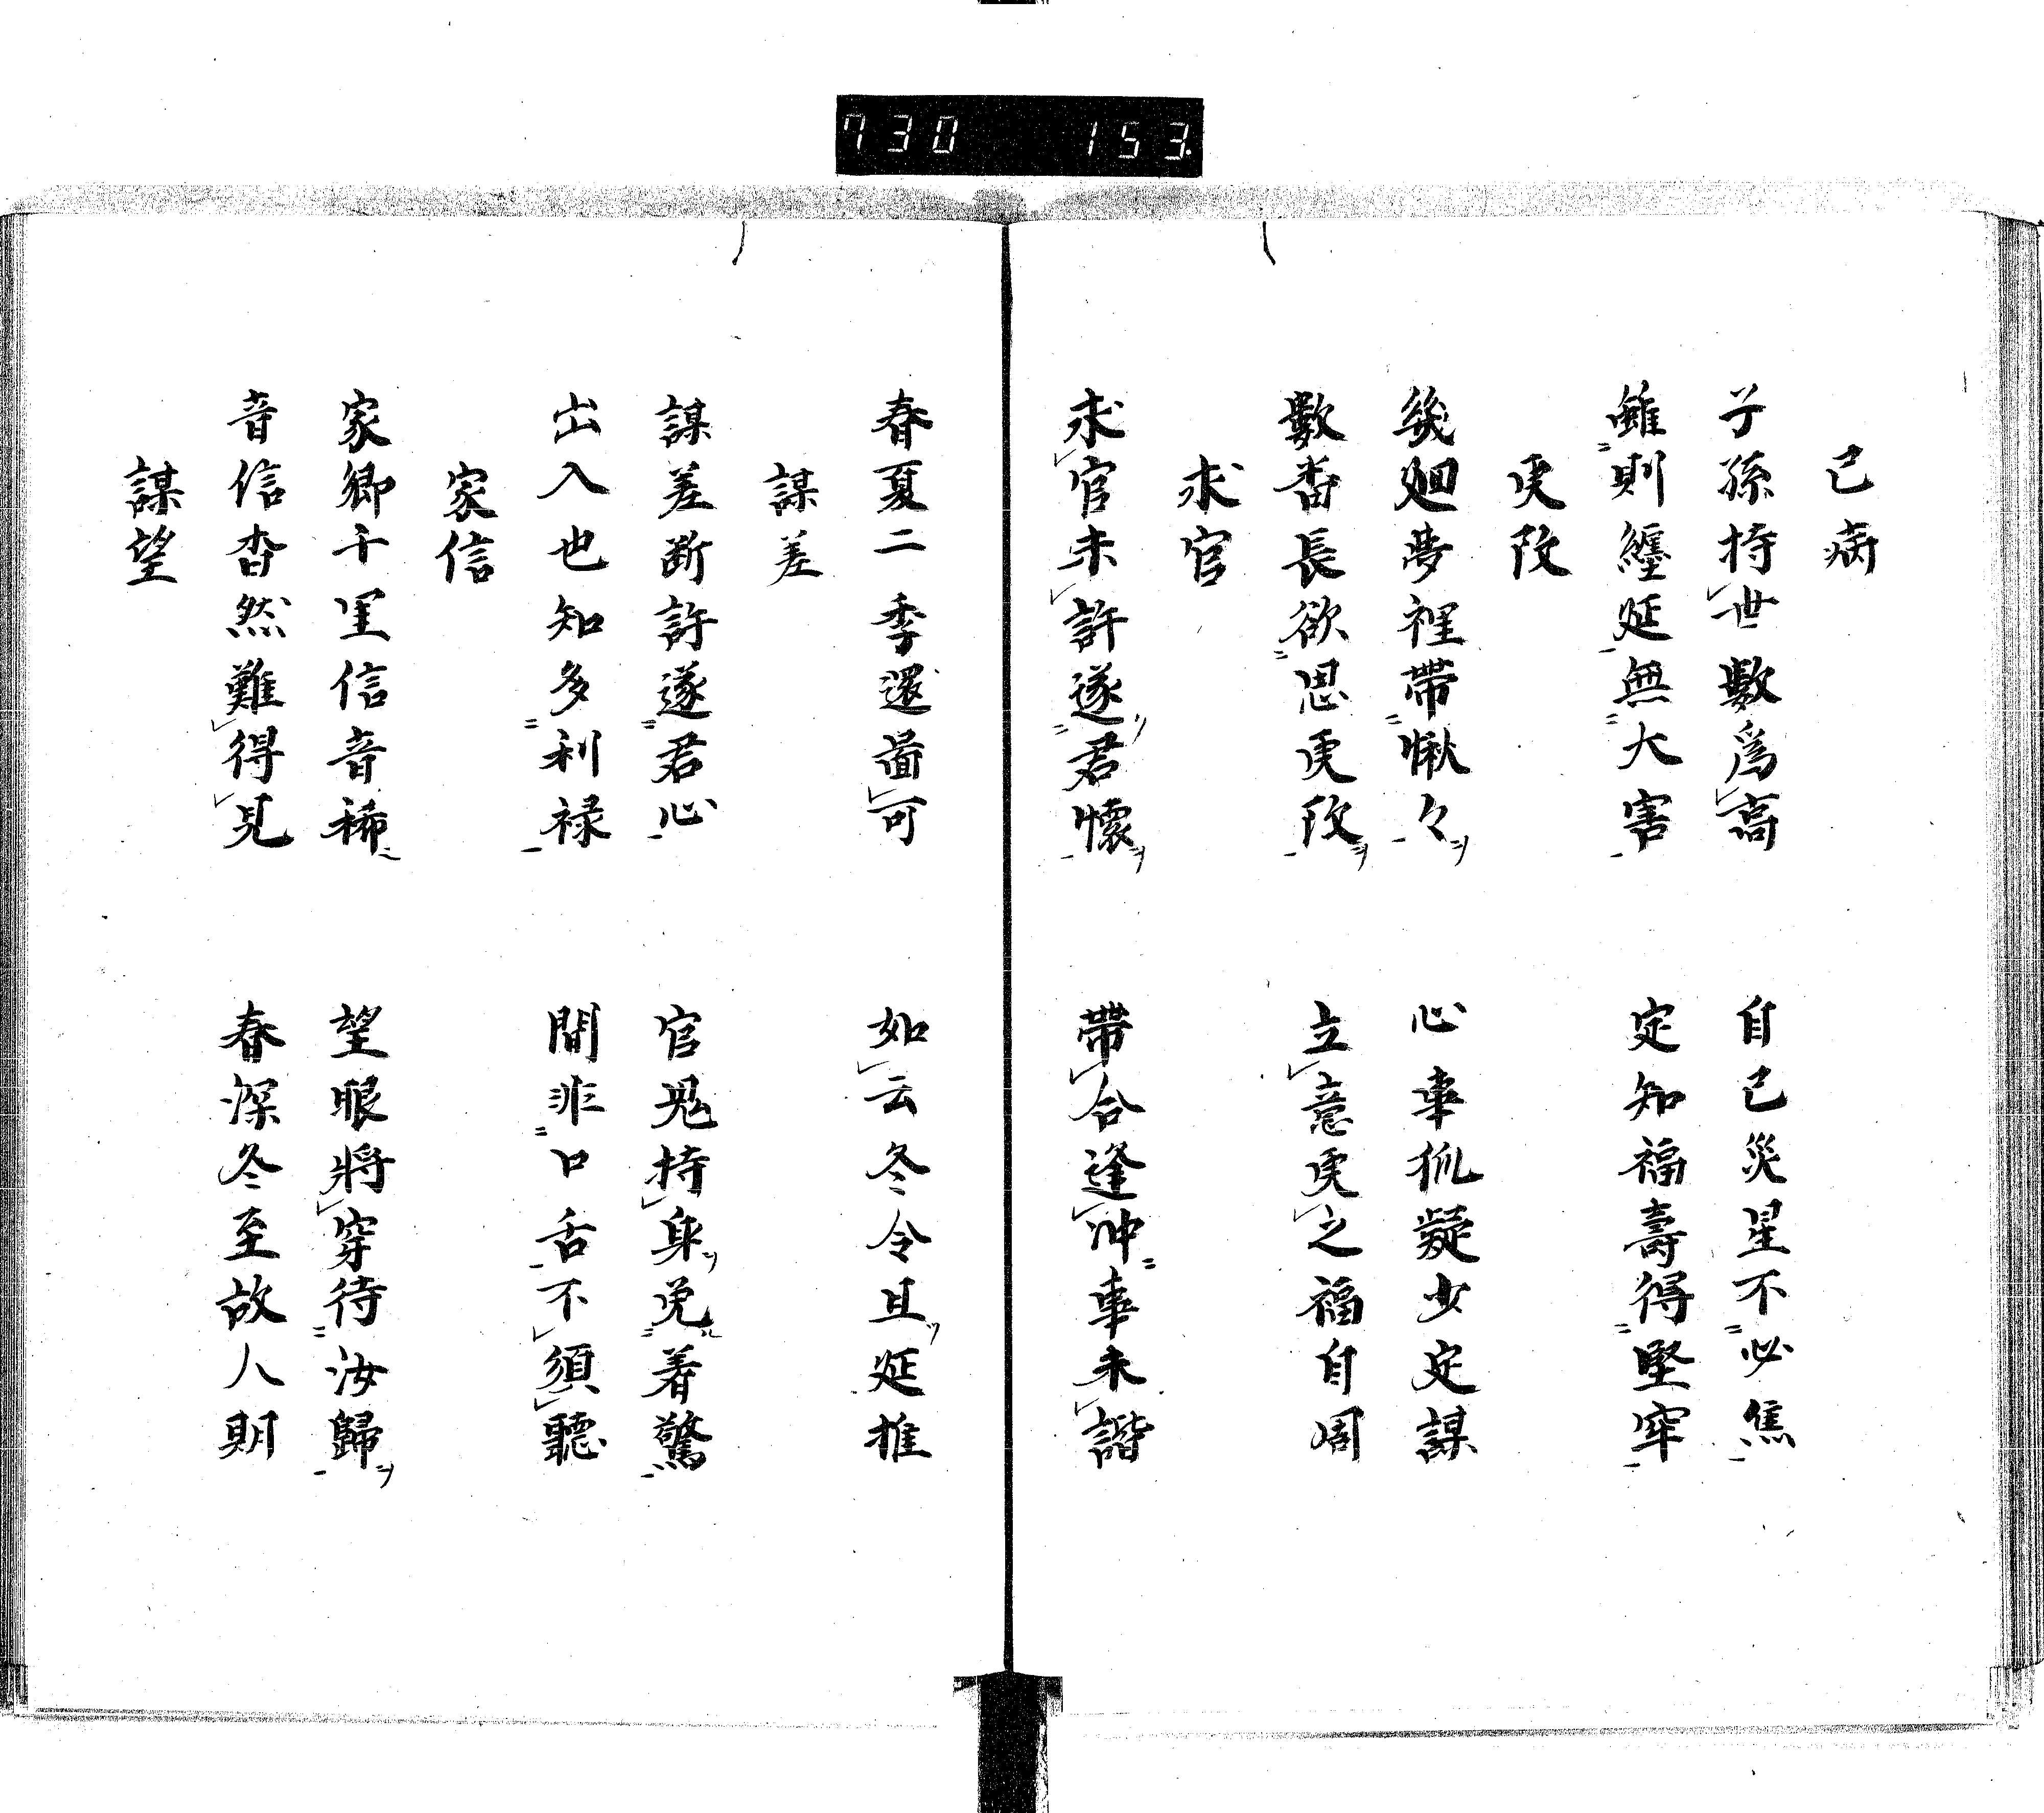 730 153
己病
子孫持世數爲高 自己災星不必焦
雖則纏延無大害 定知福壽得堅牢
更改
幾廻夢裡帶愀々 心事狐疑少定謀
數番長欲思更改 立意更之福自周
求官
求官未許遂君懷 帶合逢冲事未諧
春夏二季還啚可 如云冬令且延推
謀差
謀差断許遂君心 官鬼持身免着驚
出入也知多利禄 間非口舌不須聽
家信
家鄉千里信音稀 望眼將穿待汝歸
音信杳然難得見 春深冬至故人期
謀望